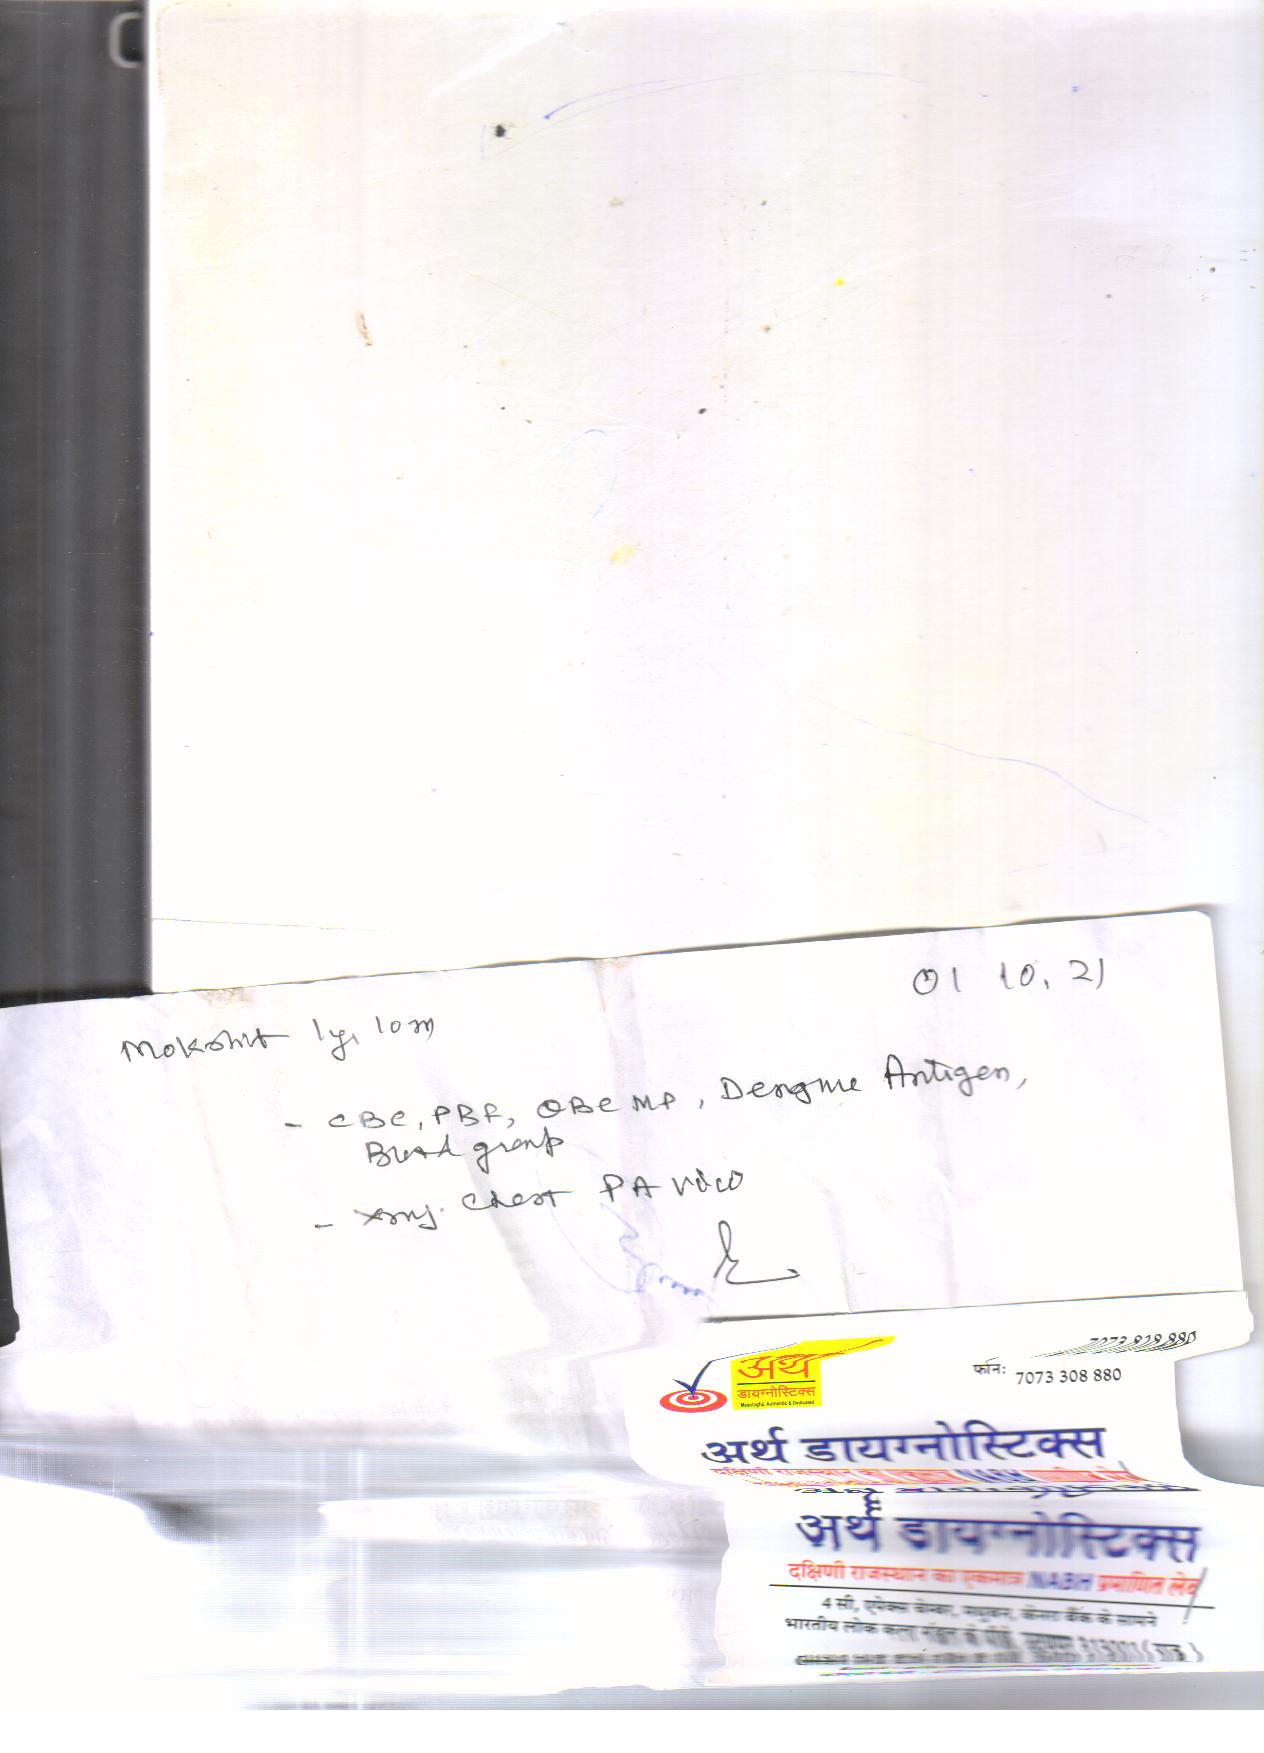 01 10. 21
Mokshit 1y, 10m
- CBC, PBF, QBC MP, Dengue Antigen,
Blood group
- Xray. Chest PA View
7073 308 880
अर्थ
डायग्नोस्टिक्स
Meaningful Authentic & Dedicated
फोनः 7073 308 880
अर्थ डायग्नोस्टिक्स
दक्षिणी राजस्थान का एकमात्र NABH
अर्थ डायग्नोस्टिक्स
दक्षिणी राजस्थान का एकमात्र NABH प्रमाणित लेब
4 सी, एपेक्स चेम्बर, मधुबन, केनरा बैंक के सामने
भारतीय लोक कला मंडल के पीछे, उदयपुर 313001 ( राज. )